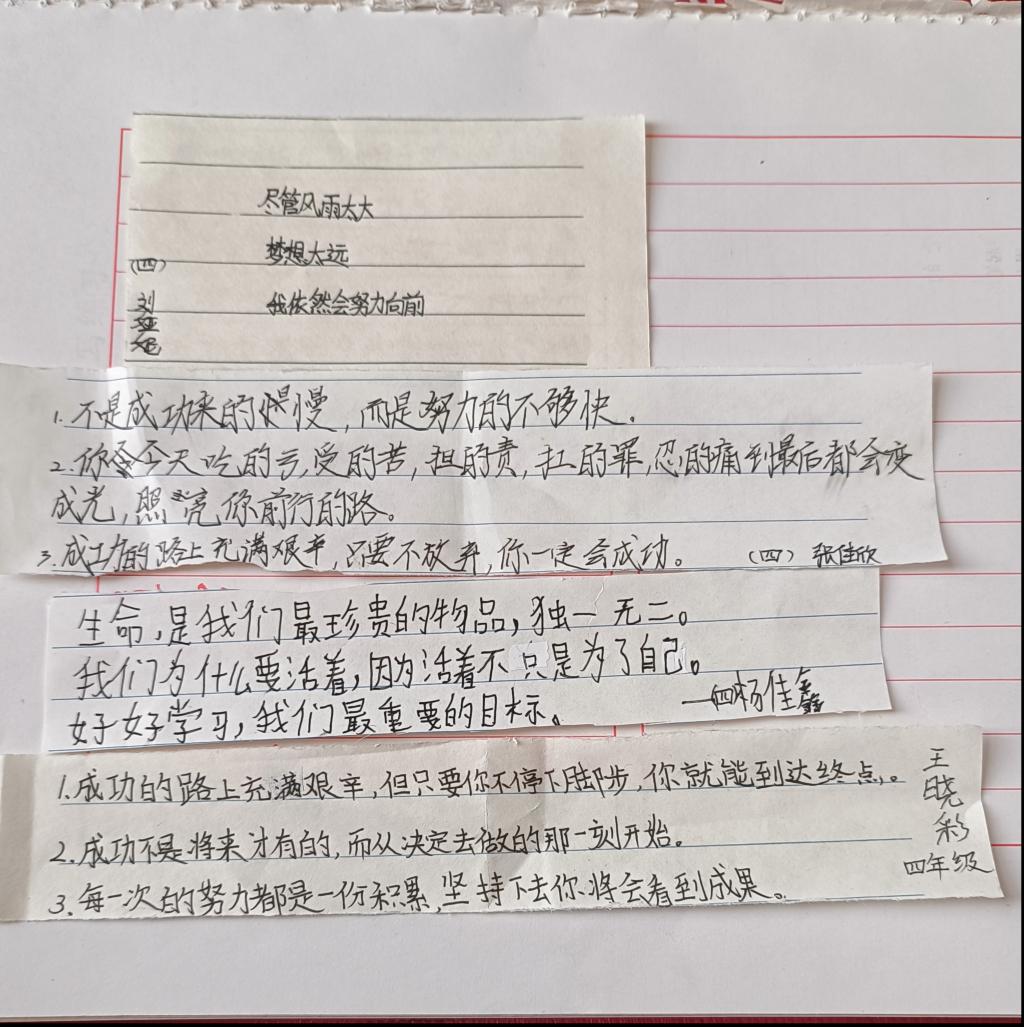 尽管风雨太大
梦想太远
(四)
我依然会努力向前
刘
1.不是成功来的慢,而是努力的不够快。
2.你今天吃的亏,受的苦,担的责,扛的罪,忍的痛到最后都会变
成光,照亮你前行的路。
3.成功的路上充满艰辛,只要不放弃,你一定会成功。 (四) 张佳欣
生命,是我们最珍贵的物品,独一无二。
我们为什么要活着,因为活着不只是为了自己。
好好学习,我们最重要的目标。 —四杨佳鑫
1.成功的路上充满艰辛,但只要你不停下脚步,你就能到达终点。
2.成功不是将来才有的,而从决定去做的那一刻开始。
3.每一次的努力都是一份积累,坚持下去你将会看到成果。
王
晓
彩
四年级